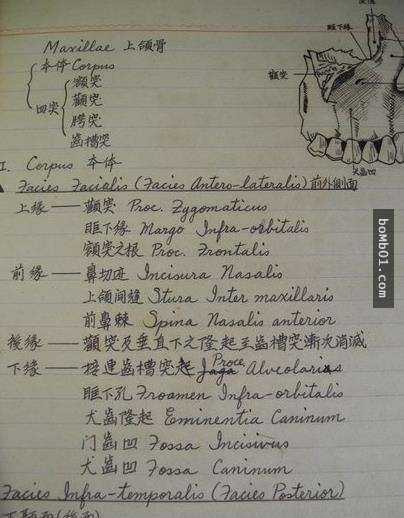 Maxillae 上頜骨
本体 Corpus
四突
顳突
顴突
腭突
齒槽突
眶下緣
顴突
犬齒凹
I. Corpus 本体
Facies Facialis (Facies Antero-lateralis) 前外側面
上緣 — 顴突 Proc. Zygomaticus
眶下緣 Margo Infra-orbitalis
額突之根 Proc. Frontalis
前緣 — 鼻切迹 Incisura Nasalis
上頜间縫 Stura Inter maxillaris
前鼻棘 Spina Nasalis anterior
後緣 — 顴突及垂直下之隆起至齒槽突漸次消减
下緣 — 接連齒槽突起 Proce Alveolaris
眶下孔 Froamen Infra-orbitalis
犬齒隆起 Eminentia Caninum
门齒凹 Fossa Incisivus
犬齒凹 Fossa Caninum
Facies Infra-temporalis (Facies Posterior)
bomb01.com